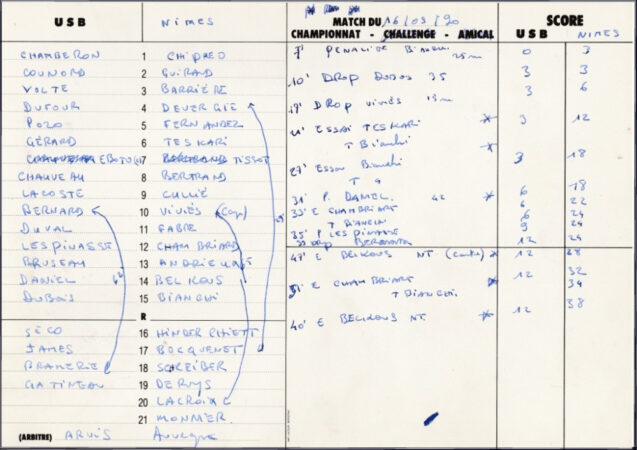 U S B NIMES
MATCH DU 16/09/90
CHAMPIONNAT - CHALLENGE - AMICAL
SCORE
U S B NIMES
CHAMBERON 1 CHIPREO
COUNORD 2 GUIRAND
VOLTE 3 BARRIÈRE
DUFOUR 4 DEVERGIE
POZO 5 FERNANDEZ
GÉRARD 6 TESKARI
7 TISSOT
CHAUVEAU 8 BERTRAND
LACOSTE 9 CULLIÉ
BERNARD 10 VIVIÉS (Cap)
DUVAL 11 FABRE
LESPINASSE 12 CHAMBRIARD
BRUSEAU 13
DANIEL 14 BELKOUS
DUBOIS 15 BIANCHI
R
SÉCO 16
JAMES 17 BOCQUENET
BRAMERIE 18 SCREIBER
GATINEAU 19 DERUYS
20 LACROIX
21 MONNIER
(ARBITRE) ARVIS Auvergne
PENALITE 0 3
10' DROP DUBOIS 35 3 3
DROP VIVIÉS 15m 3 6
ESSAI TESKARI 3 12
T Bianchi
27' Essai Bianchi 3 18
31' P. DANIEL 42 6 18
33' E CHAMBRIART 6 22
T BIANCHI 6 24
35' P LESPINASSE 9 24
DROP BERNARD 12 24
47' E BELKOUS NT 12 28
E CHAMBRIART 12 32
T BIANCHI 34
40' E BELKOUS NT 12 38